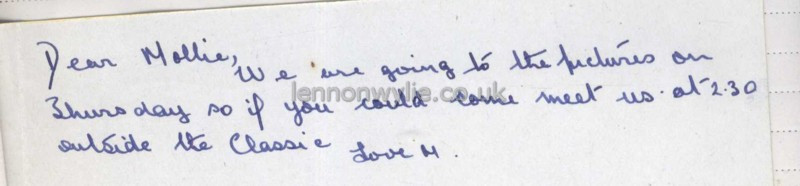 Dear Mollie,
We are going to the pictures on
Thursday so if you could come meet us at 2.30
lennonwylie.co.uk
outside the Classic Love M.